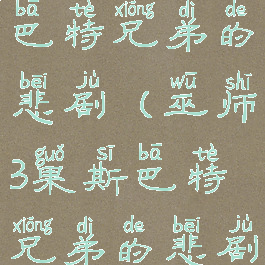 bā tè xiōng dì de
巴特兄弟的
bēi jù wū shī
悲剧(巫师
guǒ sī bā tè
3果斯巴特
xiōng dì de bēi jù
兄弟的悲剧